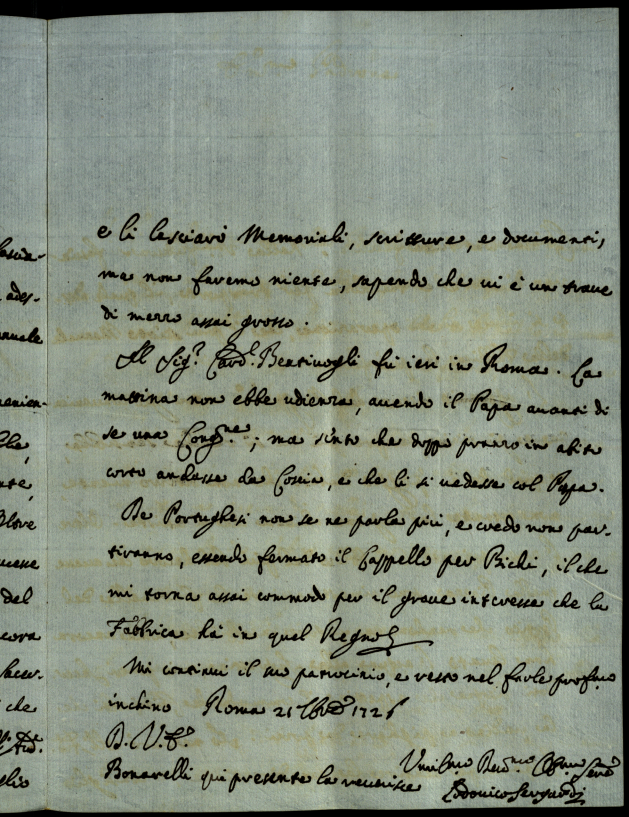 e li lesciarò Memoriali, scritture, e documenti,
ma non faremo niente, sapendo che vi è un trave
di mezzo assai grosso.
Il Sig.r Card.l Bentivogli fù ieri in Roma. La
mattina non ebbe udienza, avendo il Papa avanti di
se una Cong.ne; ma sento che doppo pranzo in abito
corto andasse da Coscia, e che li si vedesse col Papa.
De Portughesi non se ne parla più, e credo non par-
tiranno, essendo fermato il Cappello per Bichi, il che
mi torna assai commodo per il grave interesse che la
Fabbrica hà in quel Regno
Mi continui il suo patrocinio, e resto nel farle profon.o
inchino Roma 21 1726
D. V. E.
Bonarelli qui presente la reverisce
Umil.mo Dev.mo Obl.mo Serv.
Lodovico Sergardi
anuale
del
che